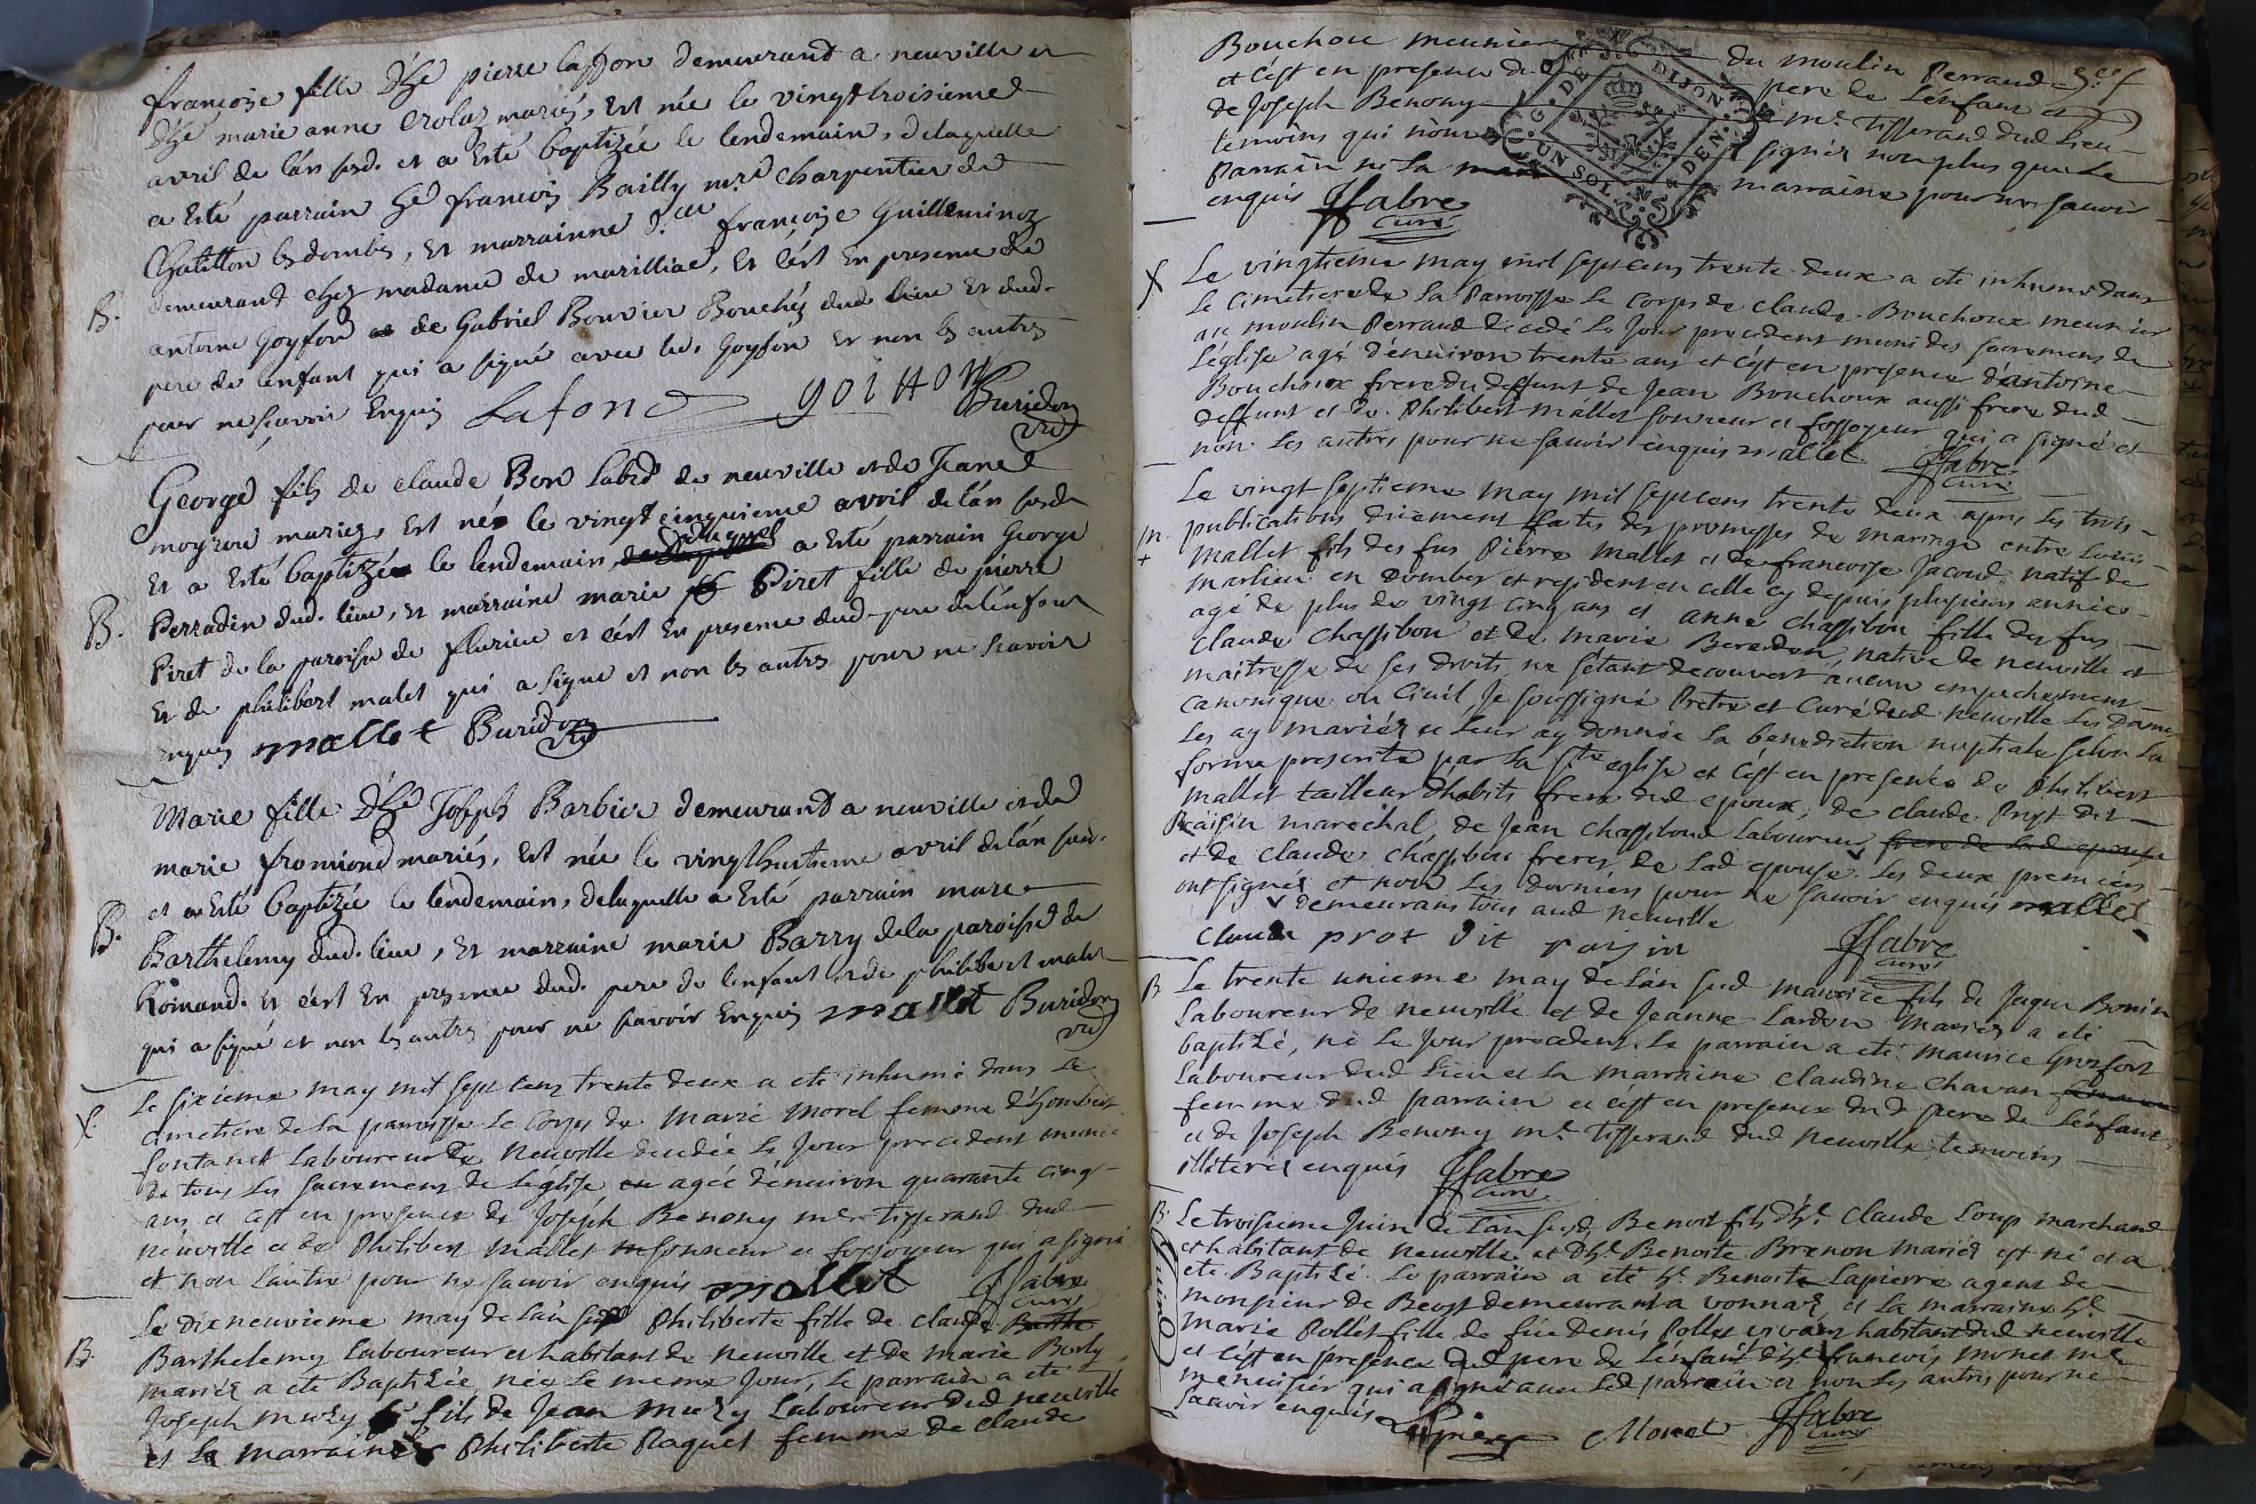 françoise fille d'hê pierre laffon demeurand a neuville et
d'hê marie anne Crolaz mariés, est née le vingt troisieme
avril de l'an susd. et a esté baptizée le lendemain, de laquelle
a esté parrain hê françois Bailly mre charpentier de
Chatillon les dombes, et marrainne d.lle françoise Guilleminoz
B.
demeurand chez madame de marilliac, et c'est en presence de
antoine Goyfon de Gabriel Bouvier Bouchéz dud. lieu et dud.
pere de lenfant qui a signé avec led. Goyfon et non les autres
pour ne sçavoir Enquis Lafond goiHon Buridon
vic
George fils de claude Bon labr de neuville et de Jeane
moyroud mariez, est né le vingt cinquieme avril de l'an susd.
et a esté baptizé le lendemain, duquel a esté parrain George
B.
Perradin dud. lieu, et marraine marie Piret fille de pierre
Piret de la paroisse de flurieu et c'est En presence dud. pere de l'enfant
et de philibert malet qui a signe et non les autres pour ne scavoir
enquis mallet Buridon
vic
Marie fille d'hê Joseph Barbier demeurand a neuville et de
marie fromiond mariés, est née le vingt huitieme avril de l'an susd.
et a esté baptizée le lendemain, de laquelle a esté parrain marc
B.
Barthelemy dud. lieu, et marraine marie Barry de la paroisse de
Romand. et c'est En presence dud. pere de lenfant et de philibert malet
qui a signé et non les autres pour ne savoir Enquis mallet Buridon
vic
Le sixieme may mil sept cens trente deux a ete inhumé dans Le
cimetiere de la parroisse Le corps de Marie Morel femme d'hombert
fontanet Laboureur de Neuville decedée le Jour precedent munie
de tous Les sacremens de L'église agée d'enuiron quarante cinq
ans et c'est en presence de Joseph Benony me tisserand dud
neuville et de Philibert Mallet sonneur et fossoyeur qui a signé
et non L'autre pour ne sauoir enquis mallet ffabre
curé
Le dixneuvieme may de L'an sud Philiberte fille de claude
B.
Barthelemy Laboureur et habitant de Neuville et de Marie Borly
mariéz a ete Baptizée née Le meme Jour, Le parrain a ete
Joseph Muzy fils de Jean Muzy Laboureur dud neuville
et La marraine Philiberte Raquet femme de Claude
Bouchoux meunier du moulin Perraud
et c'est en presence du pere de L'enfant et
de Joseph Benony me Tisserand dud Lieu
temoins qui n'ont signéz non plus que Le
Parrain ni La marraine pour ne sauoir
enquis ffabre
curé
G. DE DIJON
UN SOL
DEN.
Le vingtieme may mil sept cens trente deux a ete inhumé dans
Le cimetiere de La Parroisse Le corps de claude Bouchoux meunier
au moulin Perraud decedé Le Jour precedent muni des sacremens de
L'église agé d'enuiron trente ans et c'est en presence d'antoine
Bouchoux frere du deffunt de Jean Bouchoux aussi frere dud
deffunt et de Philibert Mallet sonneur et fossoyeur qui a signé et
non Les autres pour ne sauoir enquis mallet ffabre
curé
Le vingt septieme may mil sept cens trente deux apres Les trois
m.
+
publications düement faites des promesses de mariage entre Louis
Mallet fils des fus Pierre Mallet et de francoise Jacoud natif de
marlieu en Dombes et resident en celle cy depuis plusieurs années
agé de plus de vingt cinq ans et anne chassibou fille des fus
claude chassibou et de Marie Berardan, native de neuville et
maitresse de ses droits ne s'étant decouvert aucun empechement
canonique ou ciuil Je soussigné Pretre et Curé dud neuville Les Dames
Les ay mariéz et leur ay donnée La benediction nuptiale selon La
forme prescrite par La Ste eglise et c'est en presence de Philibert
Mallet tailleur d'habits frere dud epoux, de claude Prost dit
Raisin marechal, de Jean chassibout Laboureur, frere de Lad epouse
et de claude chassibou freres de Lad epouse. Les deux premiers
ont signéz et non Les derniers pour ne sauoir enquis mallet
demeurans tous aud neuville
claude prot dit raisin ffabre
curé
B
Le trente unieme may de L'an sud Maurice fils de Jaque Bonin
Laboureur de neuville et de Jeanne Lardon Mariéz a été
baptizé, né Le Jour precedent. Le parrain a eté Maurice Grosfort
Laboureur dud Lieu et La Marraine Claudine Chavan femme
femme dud parrain et c'est en presence dud pere de L'enfant
et de Joseph Benony me Tisserand dud Neuville temoins
illiteréz enquis ffabre
curé
B.
Juin
Le troisieme Juin de L'an sud, Benoit fils d'he. claude Loup marchand
et habitant de Neuville et d'he. Benoite Brenon mariéz est né et a
eté Baptizé. Le parrain a eté he. Benoite Lapierre agent de
Monsieur de Beost demeurant a vonnaz, et La marraine he
Marie Pollet fille de feu Denis Pollet vivant habitant dud neuville
et c'est en presence dud pere de L'enfant d'he francois monet me
menuisier qui a signé auec Led parrain et non Les autres pour ne
sauoir enquis Lapierre Monet ffabre
curé